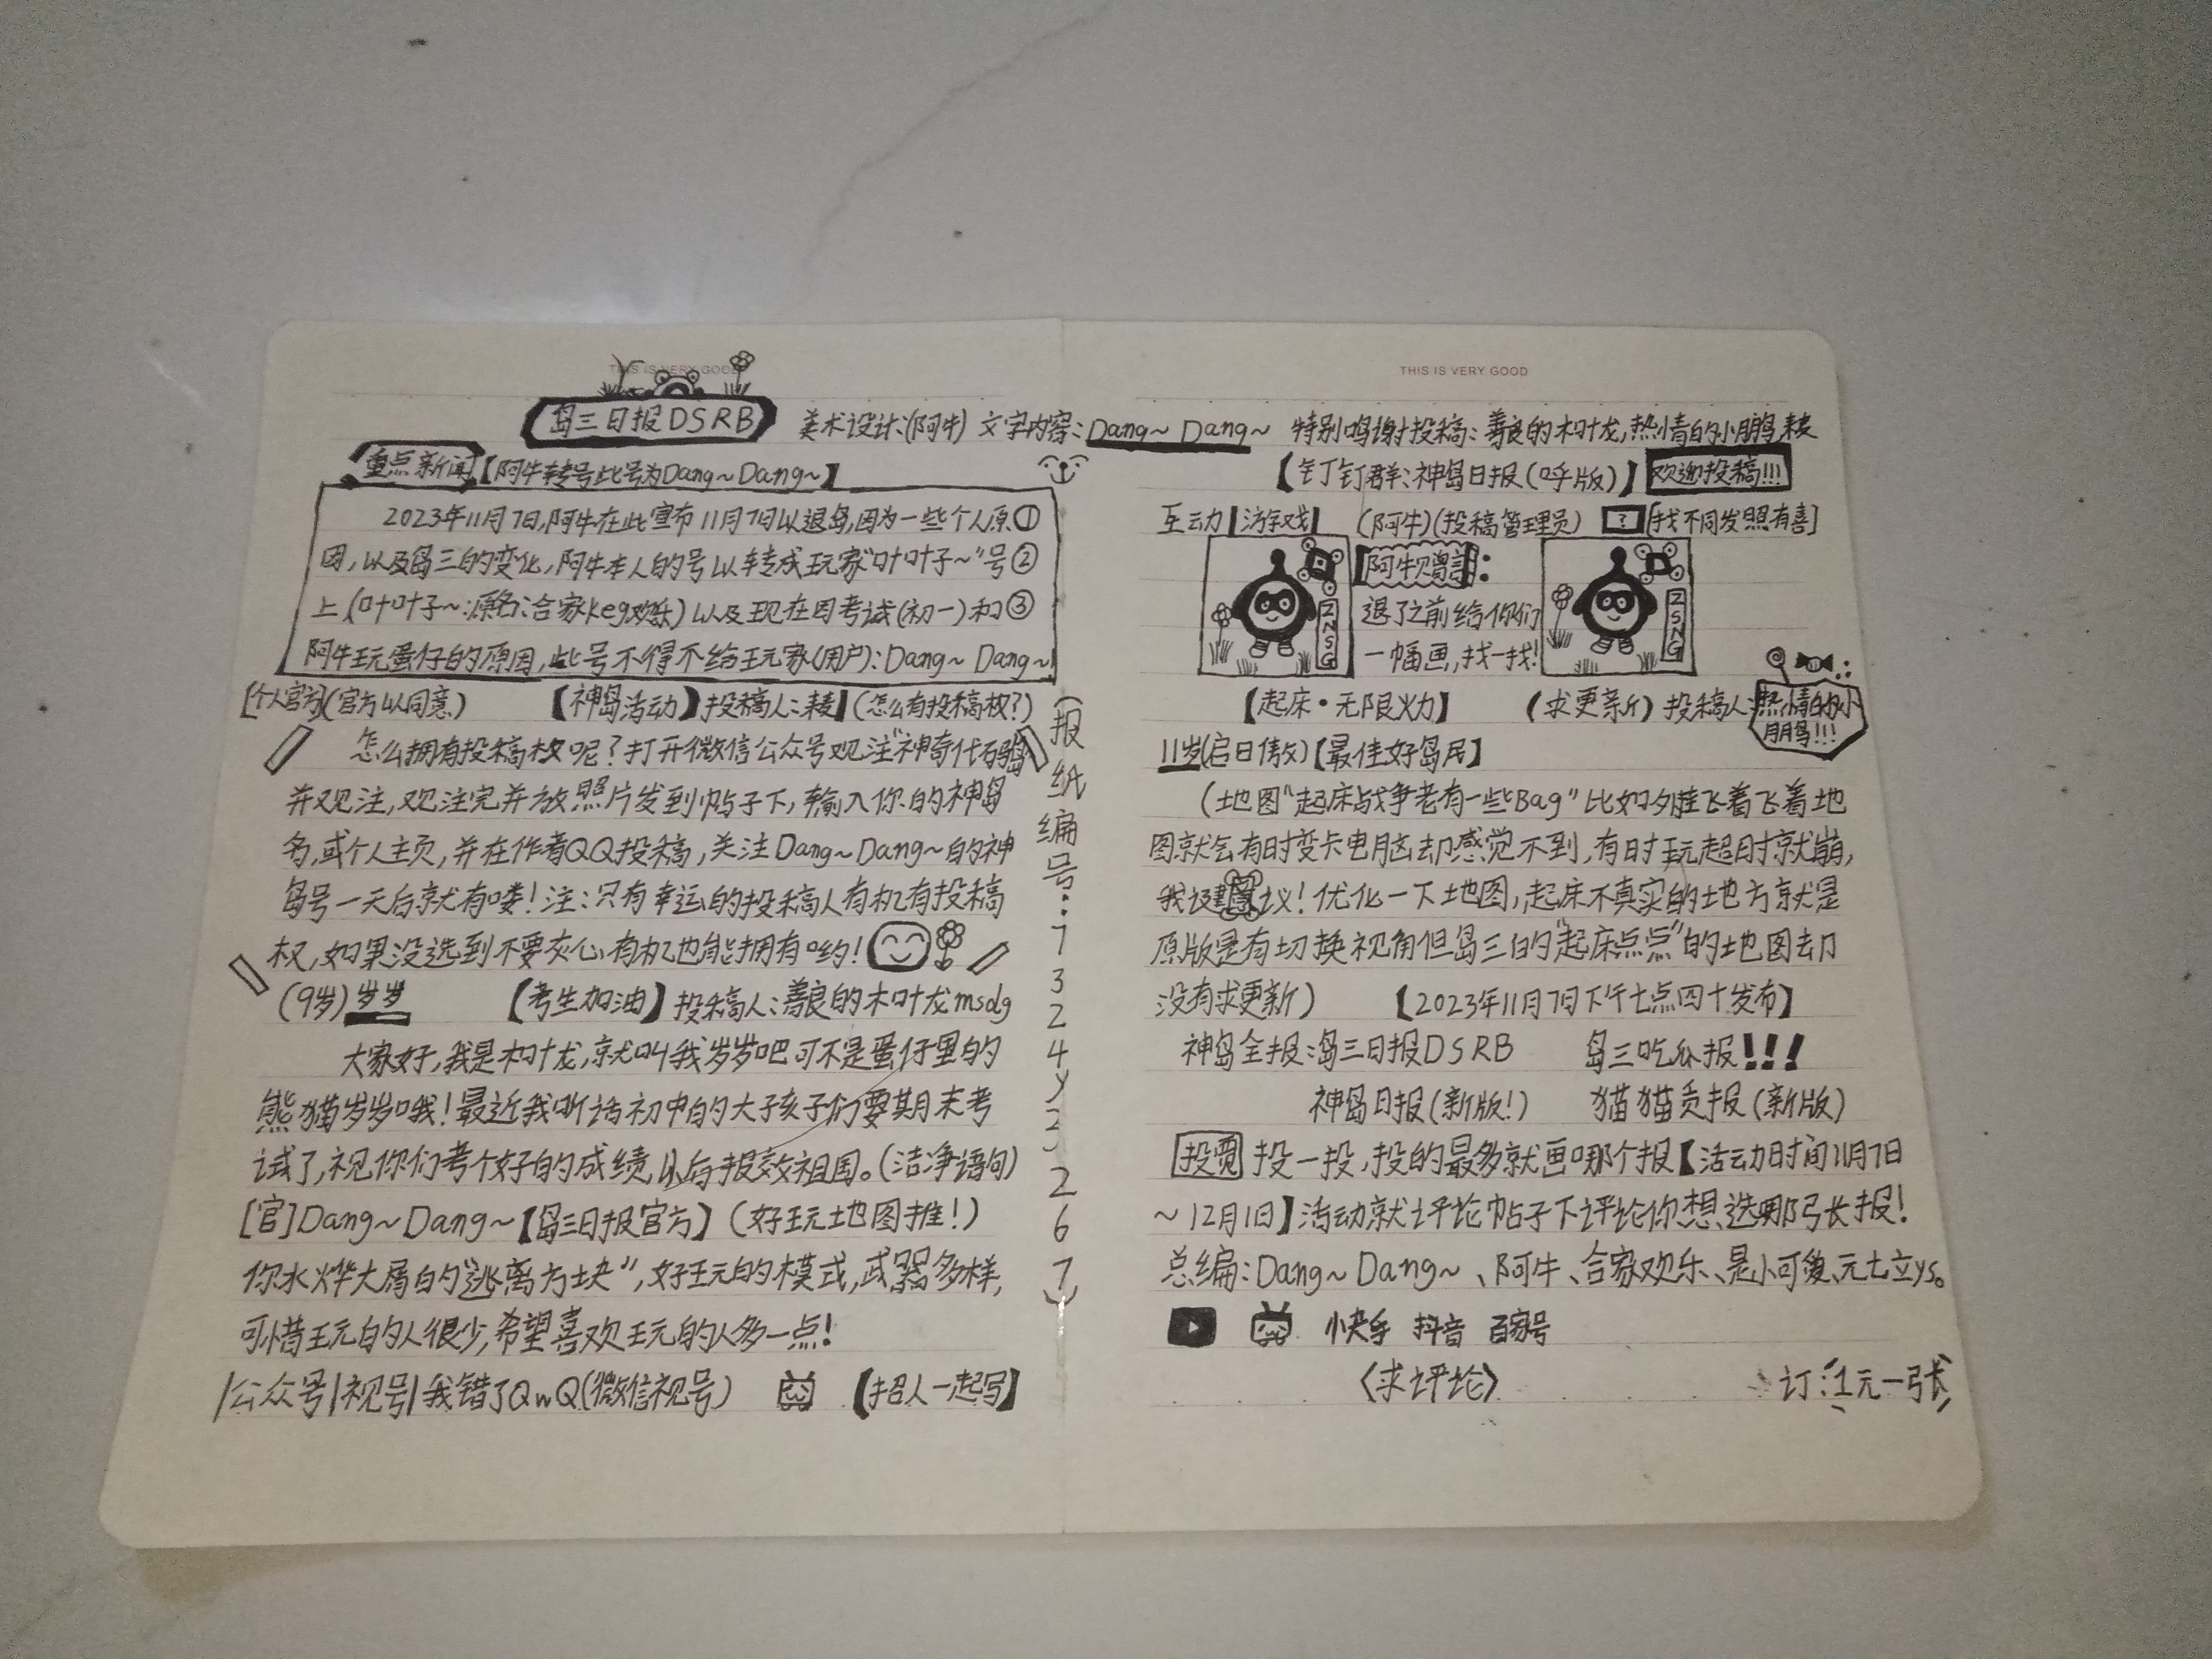 THIS IS VERY GOOD
岛三日报DSRB 美术设计:(阿牛) 文字内容:Dang~Dang~
重点新闻【阿牛转号此号为Dang~Dang~】
2023年11月7日,阿牛在此宣布11月7日以退岛,因为一些个人原①
因,以及岛三的变化,阿牛本人的号以转成玩家"叶叶子~"号②
上(叶叶子~:原名:合家keg欢乐)以及现在因考试(初一)和③
阿牛玩蛋仔的原因,此号不得不给玩家(用户):Dang~Dang~
[个人官方](官方以同意) 【神岛活动】投稿人: (怎么有投稿权?)
怎么拥有投稿权呢?打开微信公众号观注"神奇代码岛
并观注,观注完并放照片发到帖子下,输入你的神岛
名,或个人主页,并在作者QQ投稿,关注Dang~Dang~的神
岛号一天后就有喽!注:只有幸运的投稿人有机有投稿
权,如果没选到不要灰心,有机也能拥有哟!
(9岁)岁岁 【考生加油】投稿人:善良的木叶龙msdg
大家好,我是木叶龙,就叫我岁岁吧可不是蛋仔里的
熊猫岁岁哦!最近我听话初中的大孩子们要期末考
试了,祝你们考个好的成绩,以后报效祖国。(洁净语句)
[官]Dang~Dang~【岛三日报官方】(好玩地图推!)
你水烨大屑的"逃离方块",好玩的模式,武器多样,
可惜玩的人很少,希望喜欢玩的人多一点!
|公众号|视号|我错了QwQ(微信视号) 【招人一起写】
(报纸编号:7324y32267)
THIS IS VERY GOOD
特别鸣谢投稿:善良的木叶龙,热情的小鹏,
【钉钉群:神岛日报(呼版)】欢迎投稿!!!
互动|游戏| (阿牛)(投稿管理员) ? [找不同发照有喜]
阿牛赠言:
退了之前给你们
一幅画,找一找!
ZNSG
ZSNG
【起床·无限火力】 (求更新) 投稿人:热情的小
朋鸟!!!
11岁(启日傲)【最佳好岛民】
(地图"起床战争老有一些Bag"比如外挂飞着飞着地
图就会有时变卡电脑却感觉不到,有时玩超时就崩,
我建议!优化一下地图,起床不真实的地方就是
原版是有切换视角但岛三的"起床点点"的地图却
没有求更新) 【2023年11月7日下午七点四十发布】
神岛全报:岛三日报DSRB 岛三吃瓜报!!!
神岛日报(新版!) 猫猫贡报(新版)
投票 投一投,投的最多就画哪个报【活动时间11月7日
~12月1日】活动就评论帖子下评论你想选哪张报!
总编:Dang~Dang~、阿牛、合家欢乐、是小可爱、元七立ys。
小快手 抖音 百家号
〈求评论〉 订:1元一张